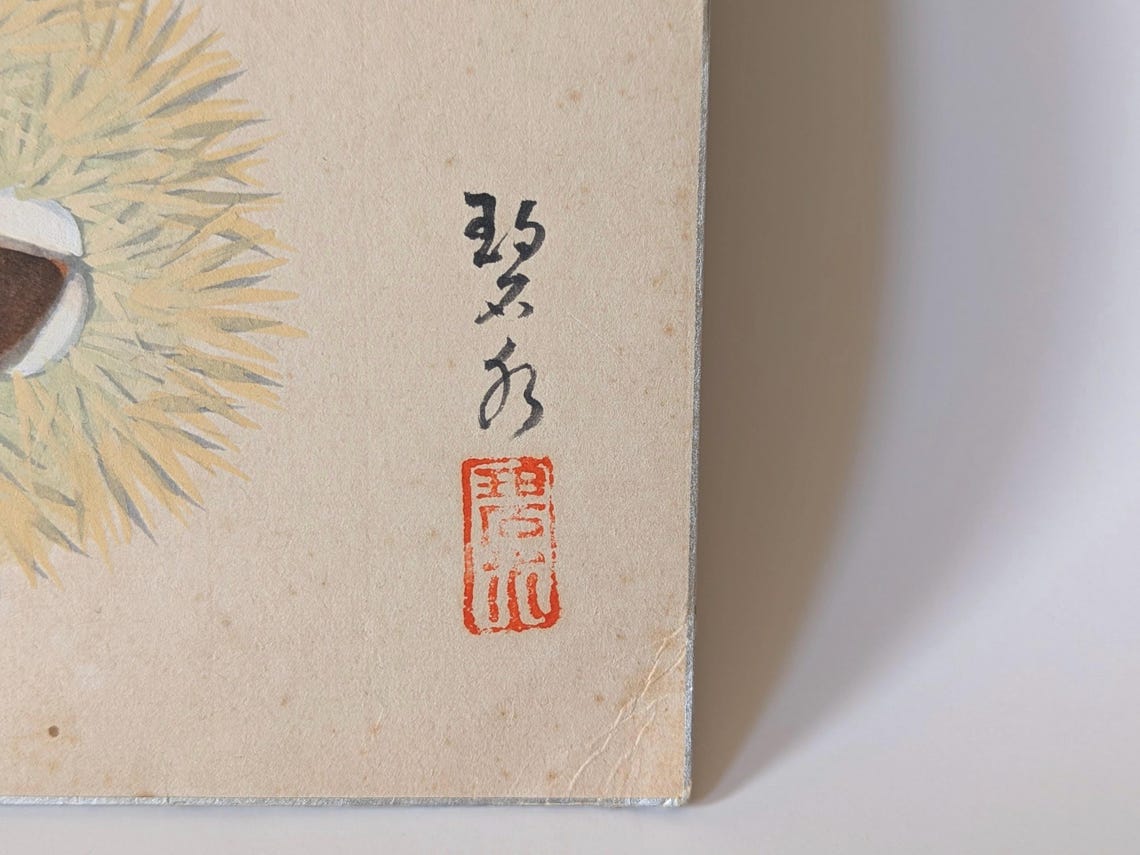 碧水
碧水